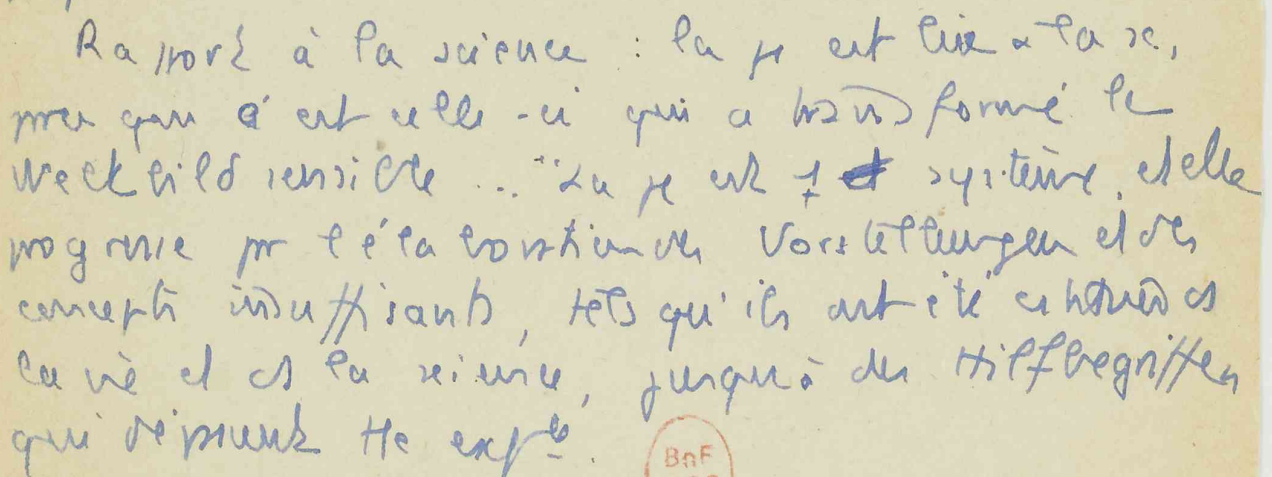 Rapport à la science : la φ est liée à la sc,
pce que c'est celle-ci qui a transformé le
Weltbild sensible ... "La φ est 1 système, et elle
progresse pr l'élaboration des Vorstellungen et des
concepts insuffisants, tels qu'ils ont été construits ds
la vie et ds la science, jusqu'à des Hilfbegriffen
qui dépassent tte exp<sup>ce</sup>.
BnF